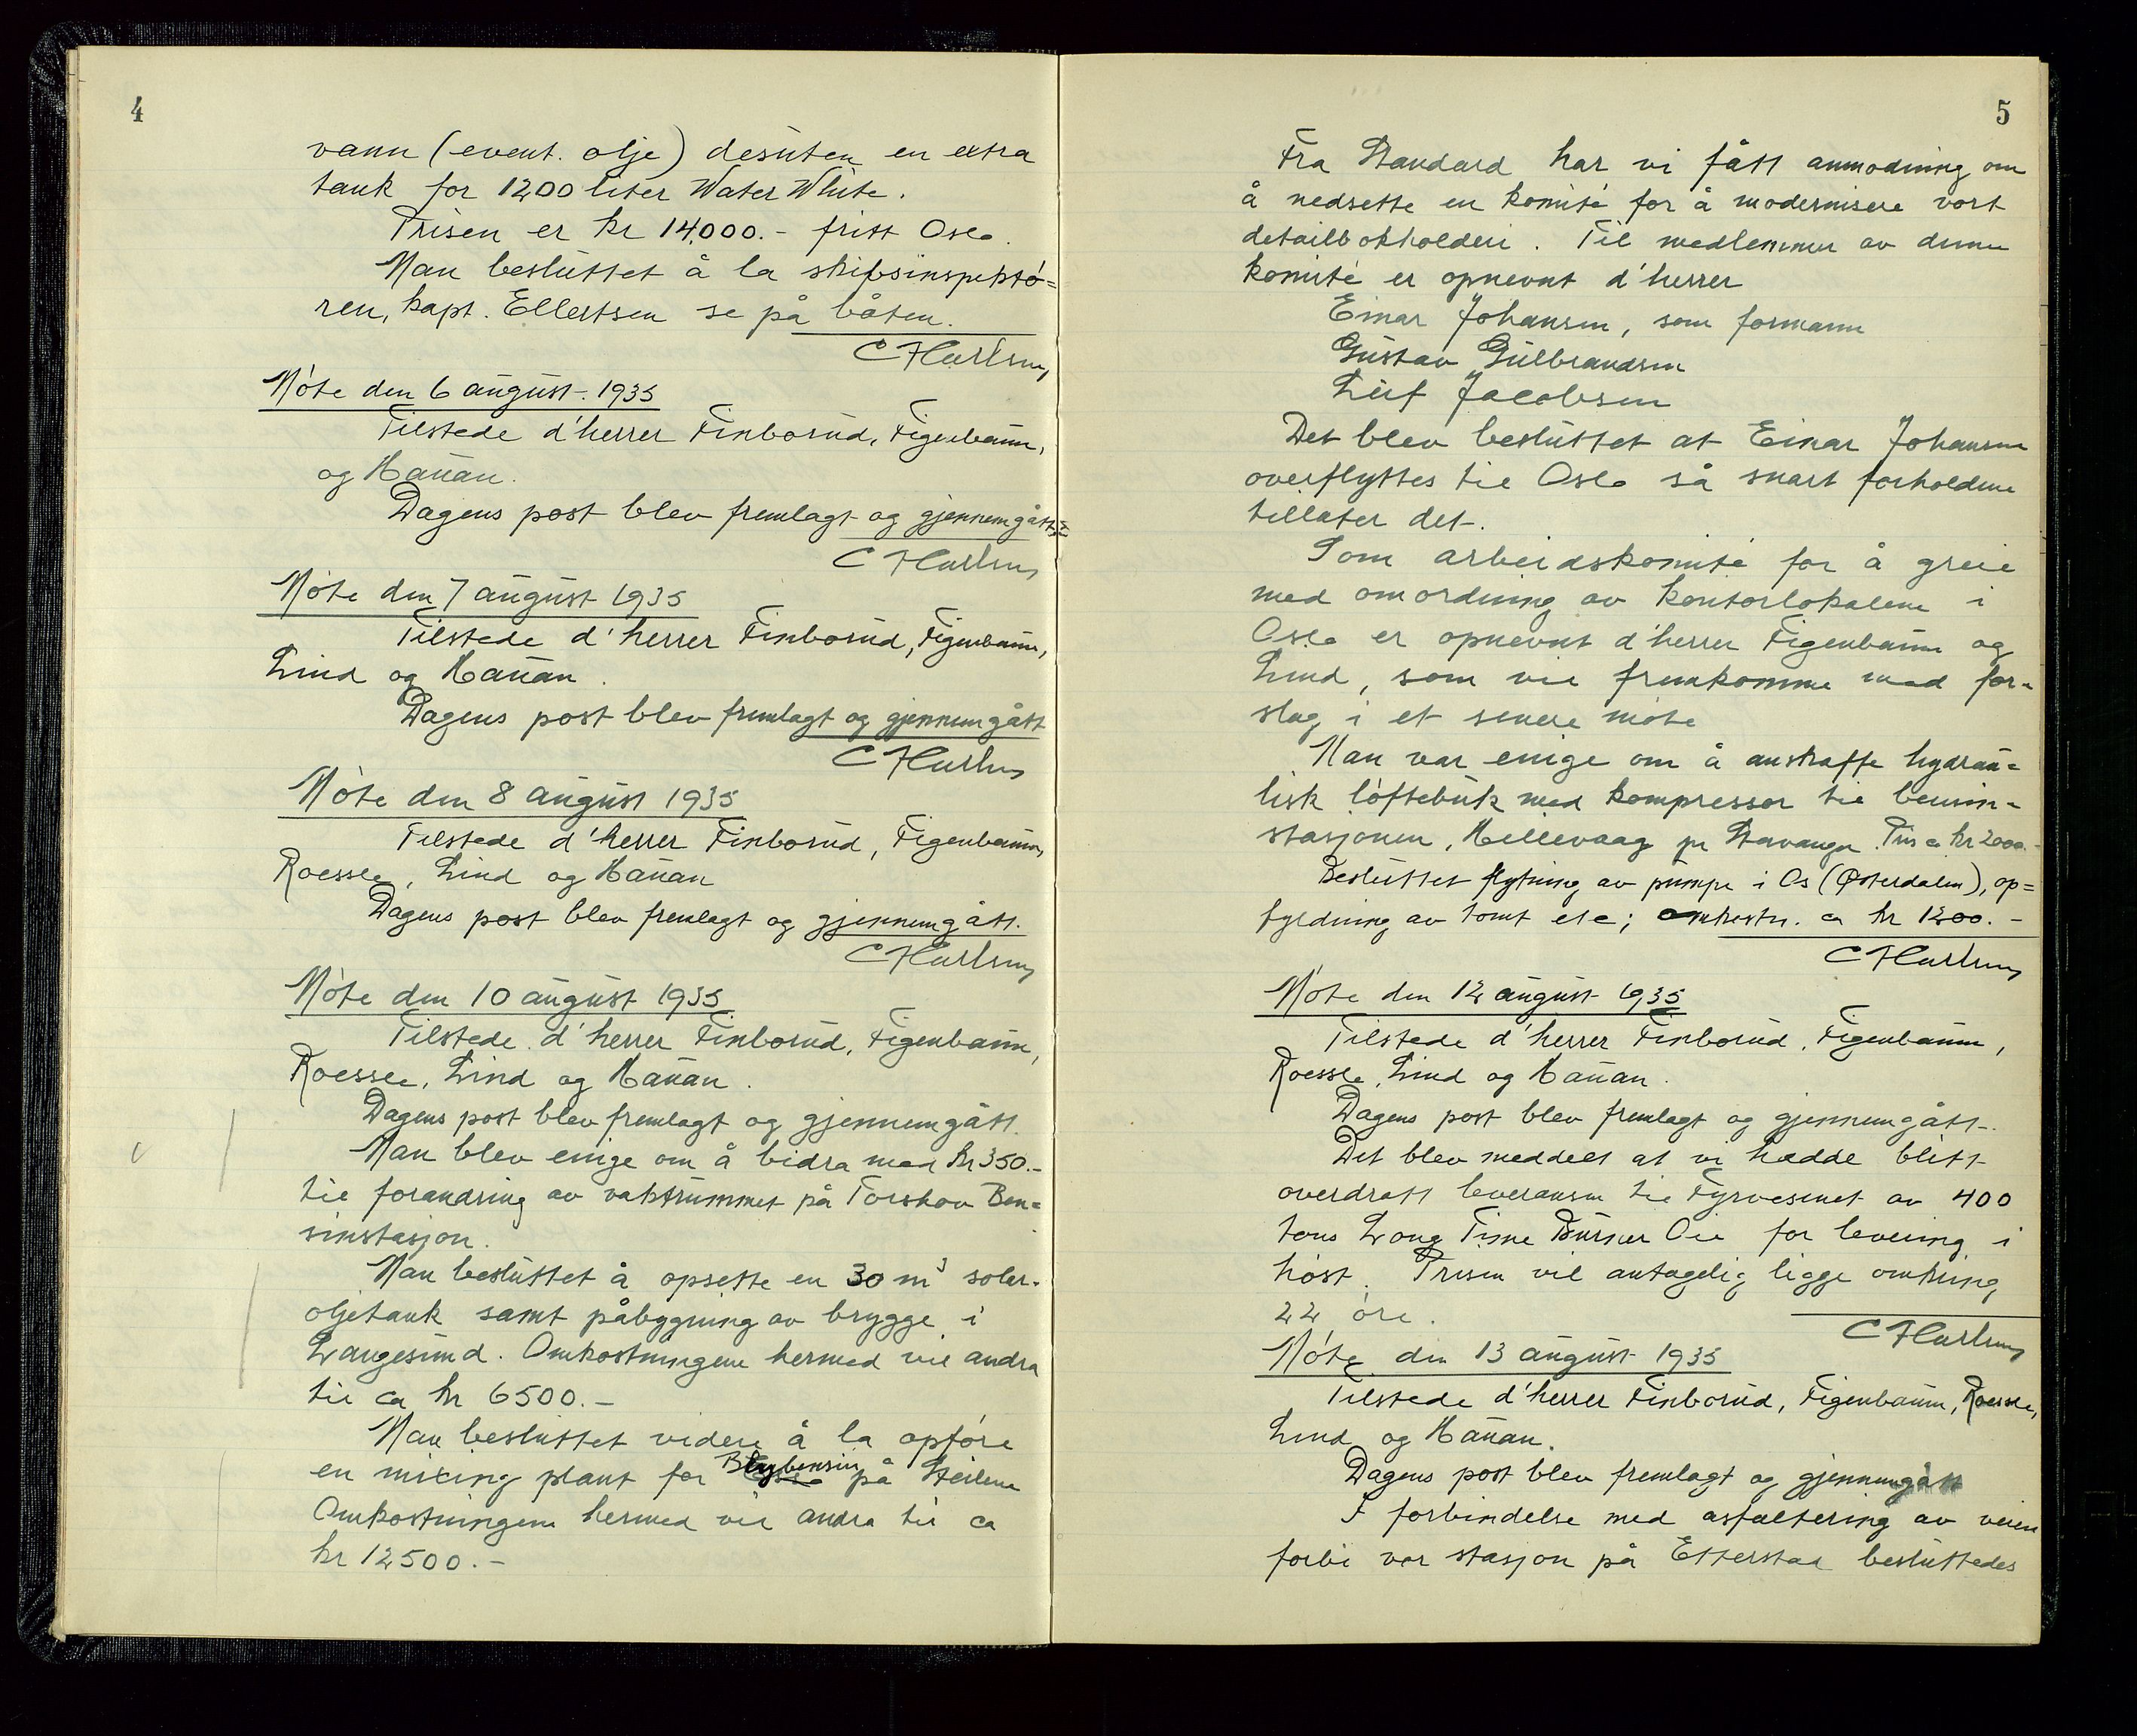 4
vann (event. olje) desuten en extra
tank for 1200 liter Water White.
Prisen er kr 14,000.- fritt Oslo.
Man besluttet å la skibsinspektø=
ren, kapt. Ellertsen se på båten.
Møte den 6 august. 1935
Tilstede d'herrer Finborud, Figenbaum,
og Hauan.
Dagens post blev fremlagt og gjennemgått.
Møte den 7 august 1935
Tilstede d'herrer Finborud, Figenbaum,
Lind og Hauan.
Dagens post blev fremlagt og gjennemgått
Møte den 8 august 1935
Tilstede d'herrer Finborud, Figenbaum,
Roessle, Lind og Hauan
Dagens post blev fremlagt og gjennemgått.
Møte den 10 august 1935
Tilstede d'herrer Finborud, Figenbaum,
Roessle, Lind og Hauan.
Dagens post blev fremlagt og gjennemgått.
Man blev enige om å bidra med kr 350.-
til forandring av vaktrummet på Torshov Ben=
sinstasjon.
Man besluttet å opsette en 30 m³ solar-
oljetank samt påbygning av brygge i
Langesund. Omkostningene hermed vil andra
til ca kr 6500.-
Man besluttet videre å la opføre
en mixing plant for Blybensin på Steilene
Omkostningene hermed vil andra til ca
kr 12500.-
5
Fra Standard har vi fått anmodning om
å nedsette en komité for å modernisere vort
detailbokholderi. Til medlemmer av denne
komité er opnevnt d'herrer
Einar Johansen, som formann
Gustav Gulbrandsen
Leif Jacobsen
Det blev besluttet at Einar Johansen
overflyttes til Oslo så snart forholdene
tillater det.
Som arbeidskomité for å greie
med omordning av kontorlokalene i
Oslo er opnevnt d'herrer Figenbaum og
Lind, som vil fremkomme med for-
slag i et senere møte
Man var enige om å anskaffe hydrau=
lisk løftebukk med kompressor til bensin-
stasjonen, Hillevaag pr Stavanger. Pris ca kr 2000.-
Besluttet flytning av pumpe i Os (Østerdalen), op=
fyldning av tomt etc; omkostn. ca kr 1200.-
Møte den 12 august 1935
Tilstede d'herrer Finborud, Figenbaum,
Roessle, Lind og Hauan.
Dagens post blev fremlagt og gjennemgått.
Det blev meddelt at vi hadde blitt
overdratt leveransen til Fyrvesenet av 400
tons Long Time Burner Oil for levering i
høst. Prisen vil antagelig ligge omkring
22 øre.
Møte den 13 august 1935
Tilstede d'herrer Finborud, Figenbaum, Roessle,
Lind og Hauan.
Dagens post blev fremlagt og gjennemgått
I forbindelse med asfaltering av veien
forbi vor stasjon på Etterstad besluttedes